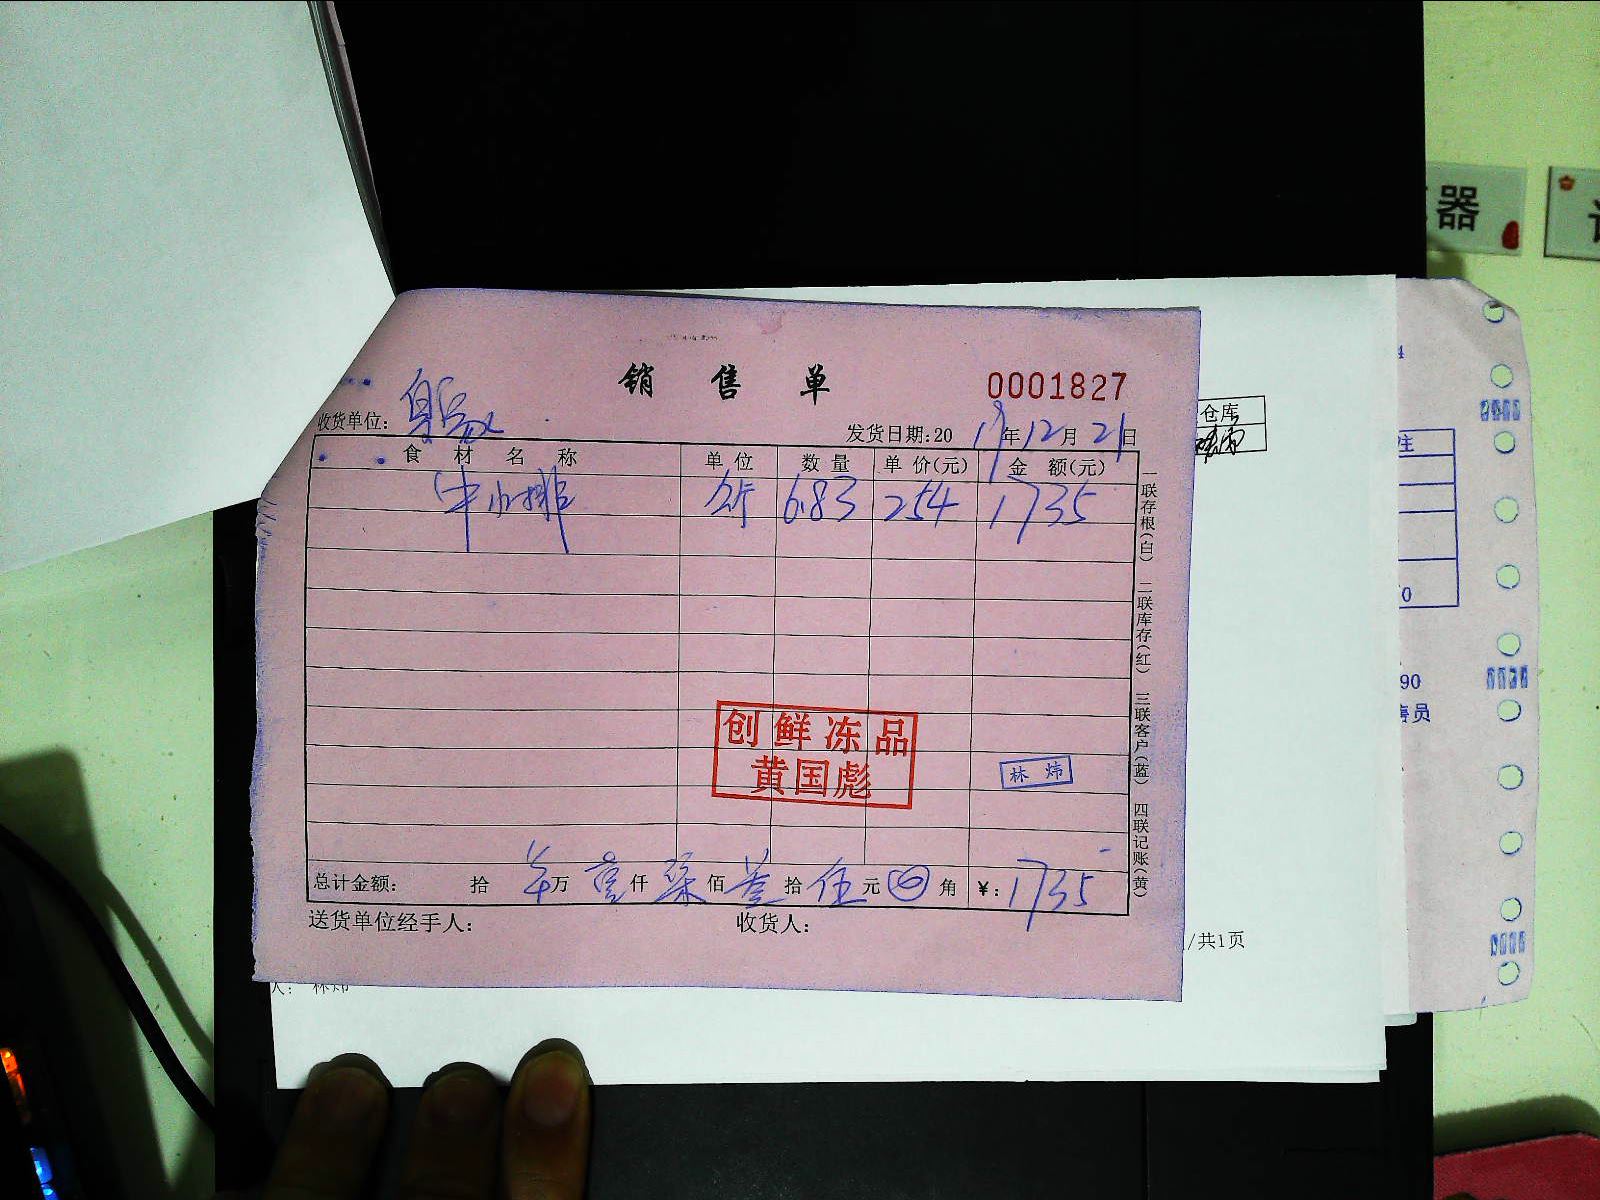 器
销售单
0001827
收货单位:
发货日期:2019年12月21日
食材名称 单位 数量 单价(元) 金额(元)
牛小排 公斤 6.83 254 1735
一联存根(白) 二联库存(红) 三联客户(蓝) 四联记账(黄)
创鲜冻品
黄国彪
林炜
总计金额: 拾 万 壹仟 柒佰 叁拾 伍元 角 ¥:1735
送货单位经手人: 收货人:
仓库
注
0
90
售员
/共1页
人: 林炜